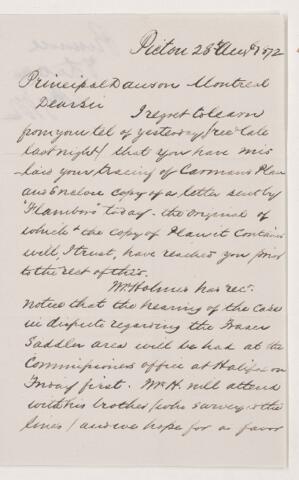 Pictou 28th Augt 1872
Principal Dawson Montreal
Dear Sir
I regret to learn
from your tel of yesterday, (rec'd late
last night) that you have mis
laid your tracing of Carmans Plan
and Enclose copy of a letter sent by
"Flamboro" today - the original of
which & the copy of Plan it contains
will, I trust, have reached you prior
to the rect of this.
Mr Holmes has rec.
notice that the hearing of the Case
in dispute regarding the Fraser
Saddler area will be had at the
Commissioners office at Halifax on
Friday first. Mr H. will attend
with his brother (who surveyed the
lines) and we hope for a favor